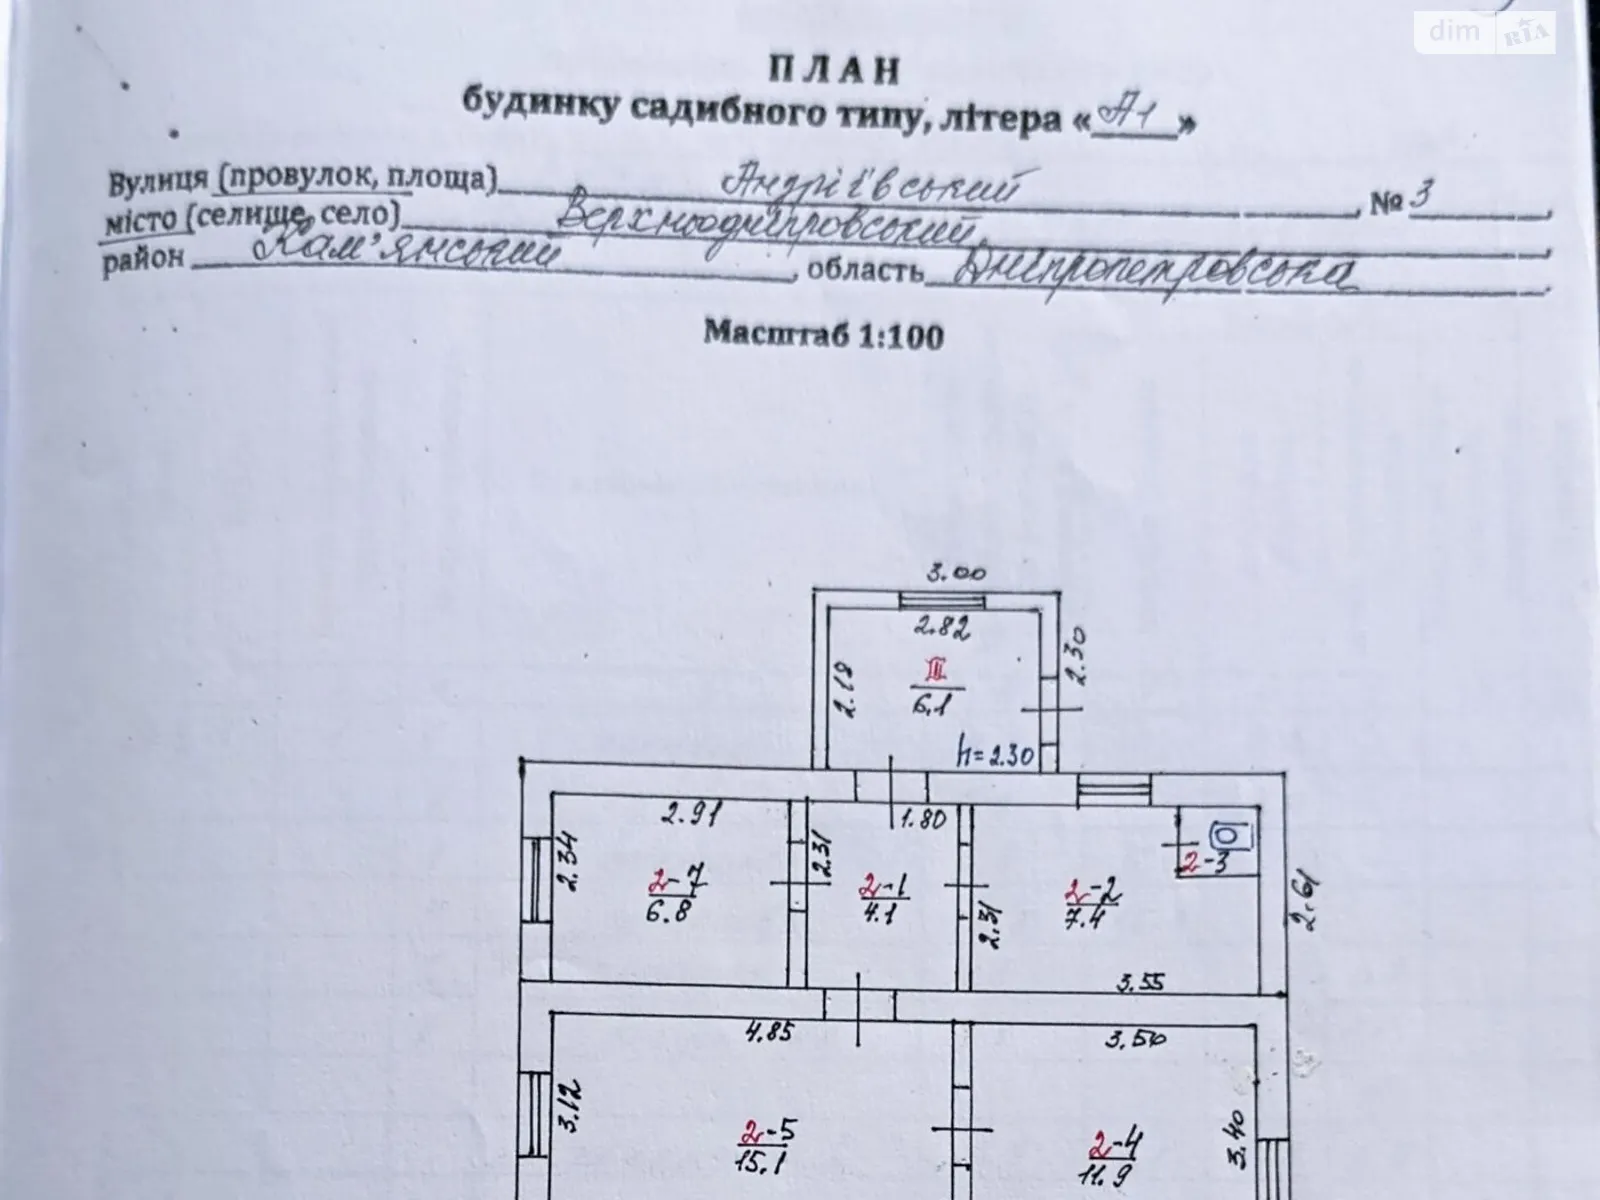 dim RIA
ПЛАН
будинку садибного типу, літера «А1»
Вулиця (провулок, площа) Андріївський, № 3,
місто (селище, село) Верхньодніпровський,
район Кам'янський, область Дніпропетровська.
Масштаб 1:100
3.00
2.82
2.30
2.18
III
6,1
h=2.30
2.91
1.80
2.34
2.31
2-3
2-7
6.8
2-1
4.1
2-2
7.4
2.31
2.61
3.55
4.85
3.50
3.12
2-5
15,1
2-4
11.9
3.40